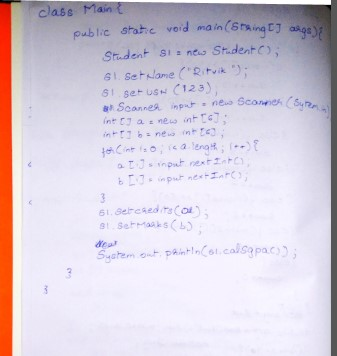 class Main {
public static void main(String[] args){
Student s1 = new Student();
s1.setName("Ritvik");
s1.setUSN(123);
Scanner input = new Scanner(System.in
int[] a = new int[6];
int[] b = new int[6];
for(int i=0; i<a.length; i++){
a[i] = input.nextInt();
b[i] = input.nextInt();
}
s1.setCredits(a);
s1.setMarks(b);
System.out.println(s1.calSgpa());
}
}